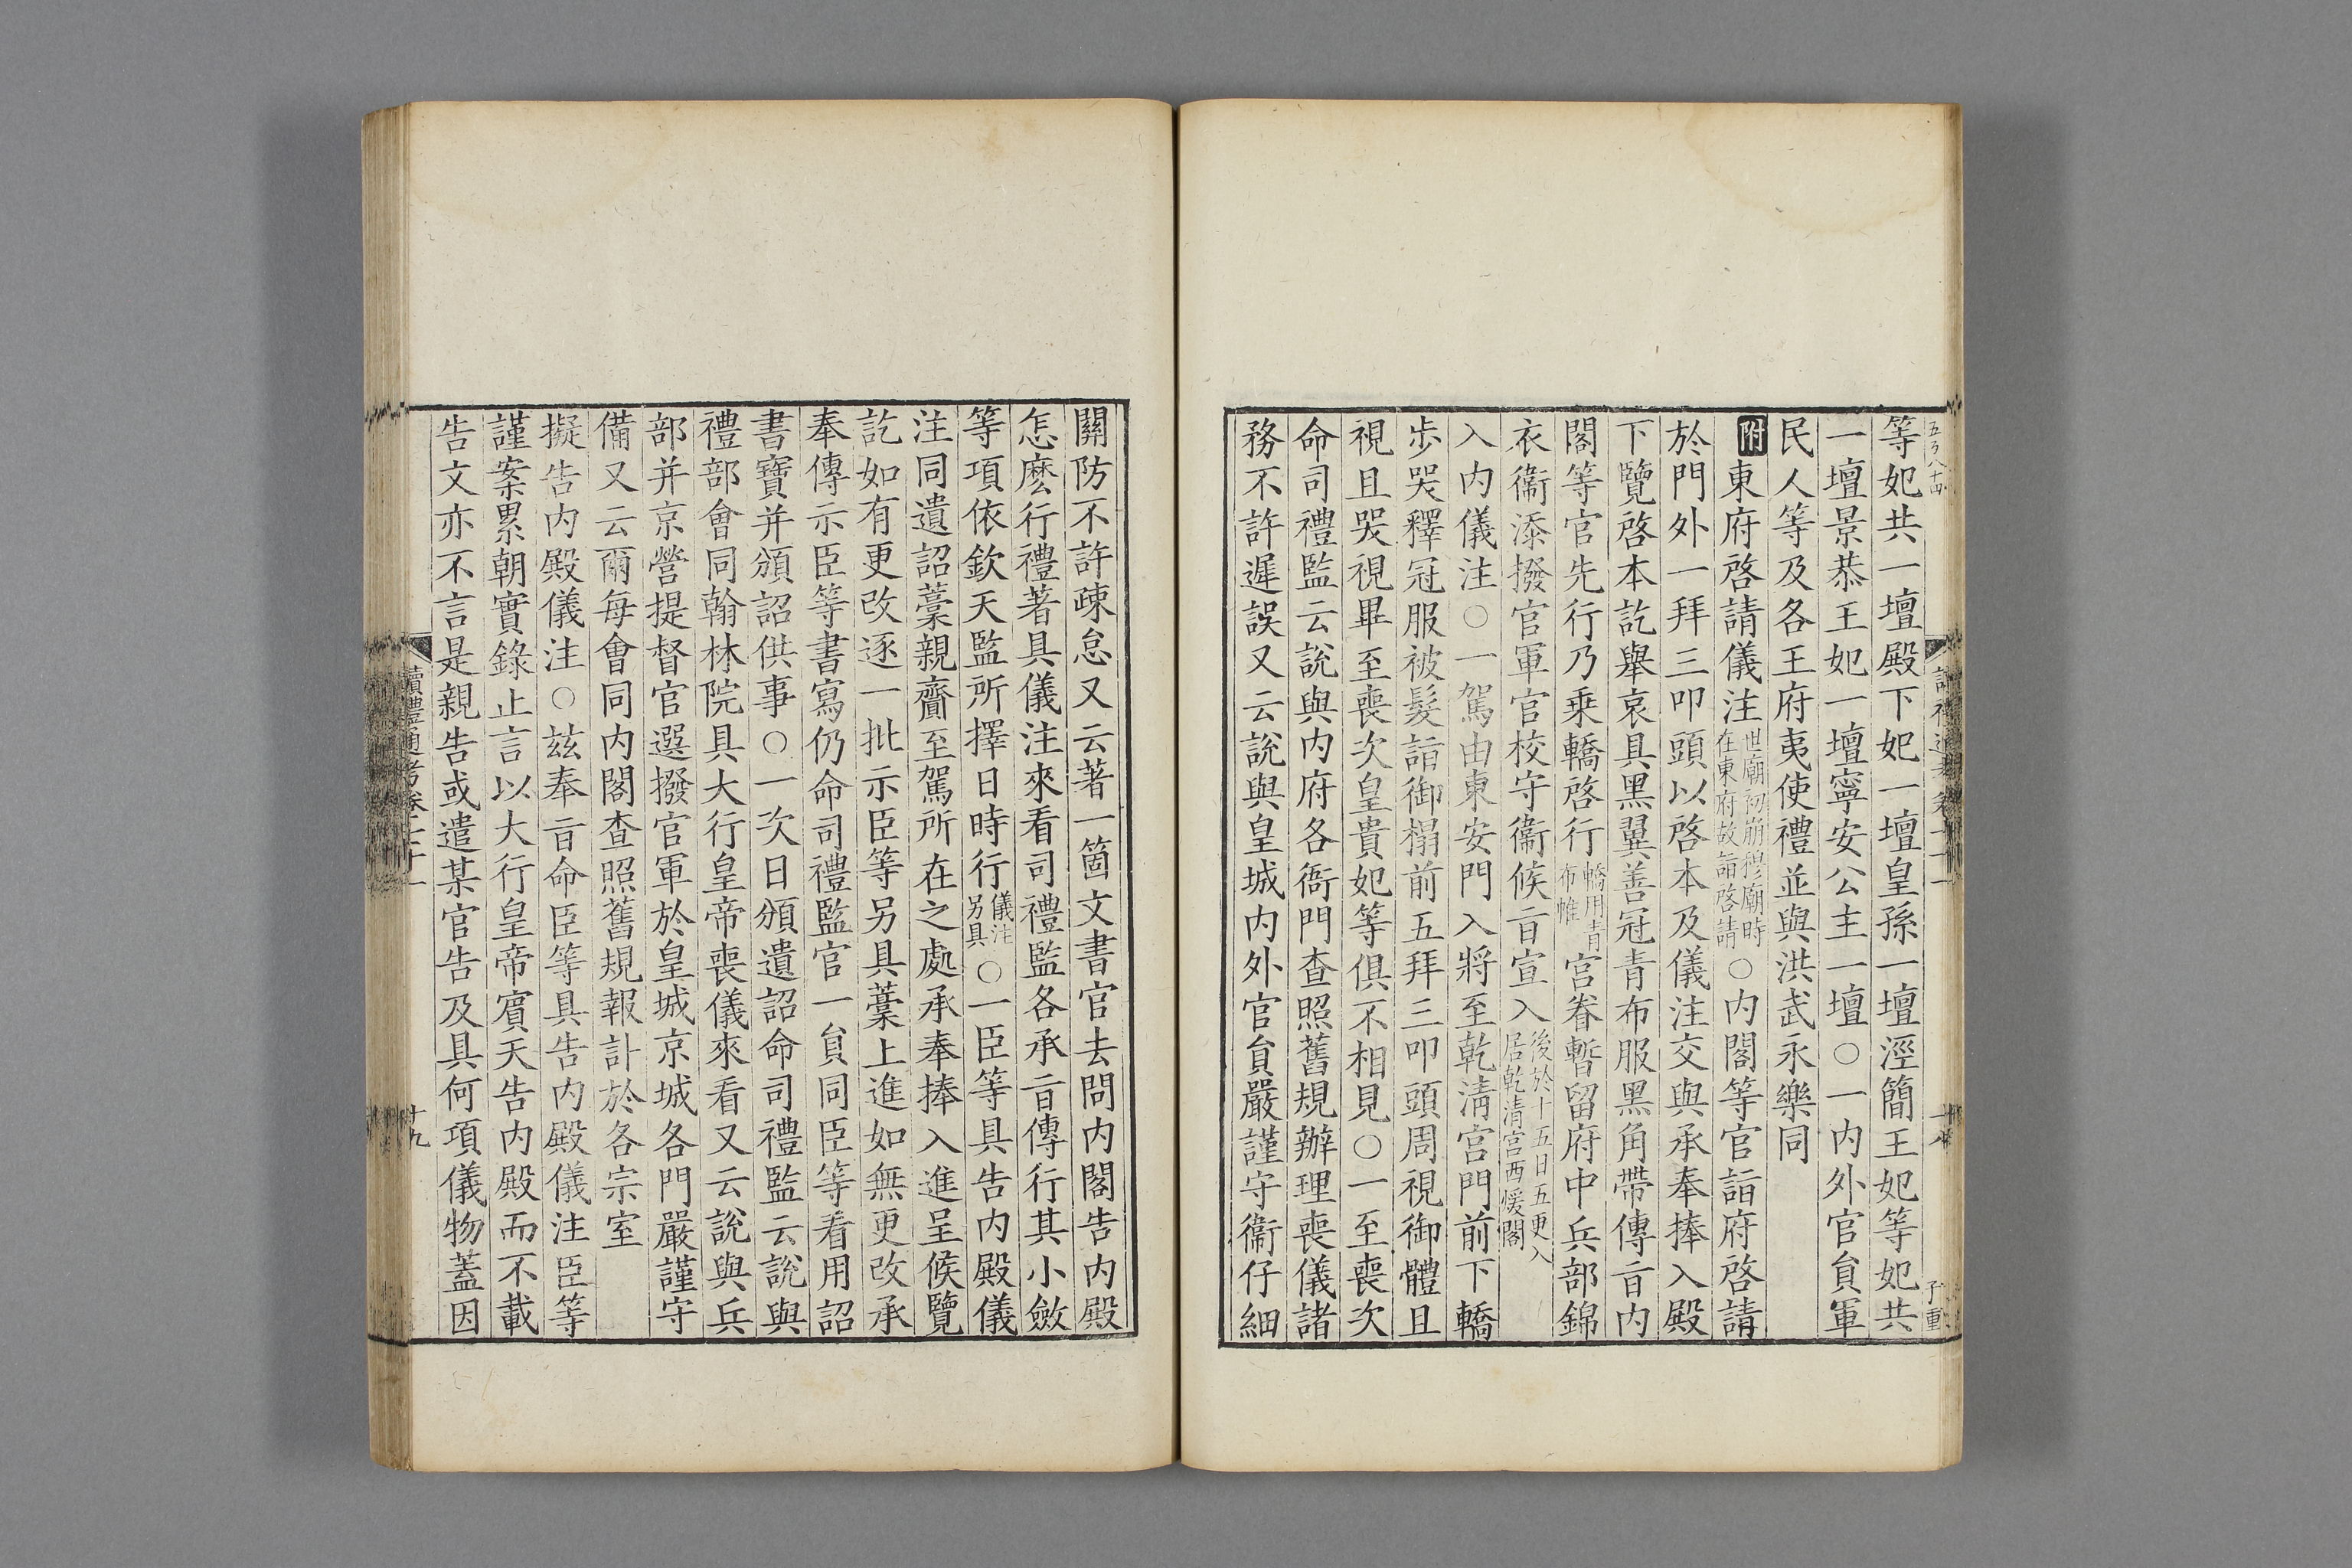 等妃共一壇殿下妃一壇皇孫一壇涇簡王妃等妃共
一壇景恭王妃一壇寧安公主一壇○一內外官員軍
民人等及各王府夷使禮並與洪武永樂同
附東府啓請儀注世廟初崩穆廟時在東府故詣啓請○內閣等官詣府啓請
於門外一拜三叩頭以啓本及儀注交與承奉捧入殿
下覽啓本訖舉哀具黑翼善冠青布服黑角帶傳旨內
閣等官先行乃乗轎啓行轎用青布帷宮眷暫留府中兵部錦
衣衞添撥官軍官校守衞候旨宣入後於十五日五更入居乾清宮西煖閣
入內儀注○一駕由東安門入將至乾淸宮門前下轎
步哭釋冠服被髮詣御榻前五拜三叩頭周視御體且
視且哭視畢至喪次皇貴妃等俱不相見○一至喪次
命司禮監云說與內府各衙門查照舊規辦理喪儀諸
務不許遲誤又云說與皇城內外官員嚴謹守衞仔細
關防不許疎怠又云著一箇文書官去問內閣告內殿
怎麽行禮著具儀注來看司禮監各承旨傳行其小斂
等項依欽天監所擇日時行儀注另具○一臣等具告內殿儀
注同遺詔藁親齎至駕所在之處承奉捧入進呈候覽
訖如有更改逐一批示臣等另具藁上進如無更改承
奉傳示臣等書寫仍命司禮監官一員同臣等看用詔
書寶并頒詔供事○一次日頒遺詔命司禮監云說與
禮部會同翰林院具大行皇帝喪儀來看又云說與兵
部并京營提督官選撥官軍於皇城京城各門嚴謹守
備又云爾每會同內閣查照舊規報計於各宗室
擬告內殿儀注○玆奉旨命臣等具告內殿儀注臣等
謹案累朝實錄止言以大行皇帝賔天告內殿而不載
告文亦不言是親告或遣某官告及具何項儀物蓋因
讀禮通考卷七十一
十九